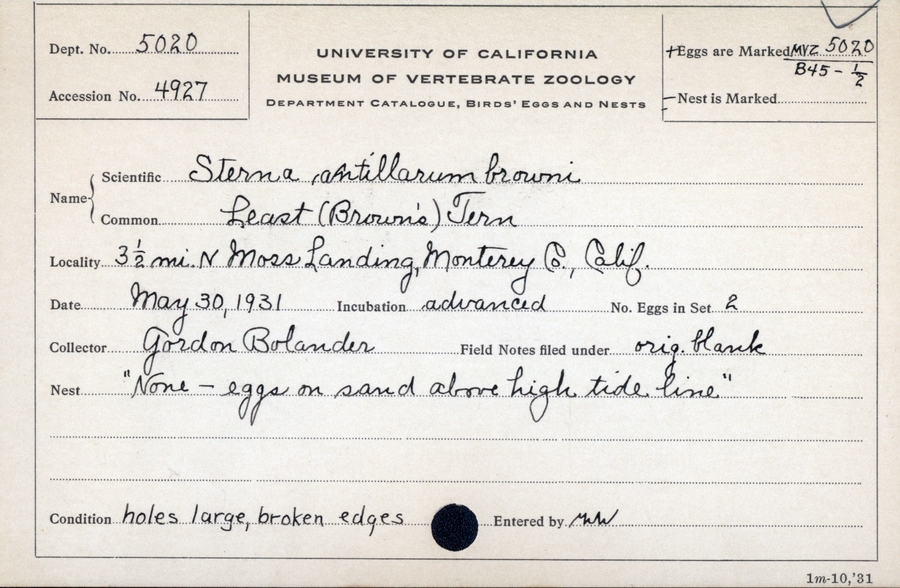 Dept. No. 5020
Accession No. 4927
UNIVERSITY OF CALIFORNIA
MUSEUM OF VERTEBRATE ZOOLOGY
DEPARTMENT CATALOGUE, BIRDS' EGGS AND NESTS
+Eggs are Marked MVZ 5020
B45 - 1/2
-Nest is Marked
Name
Scientific Sterna antillarum browni
Common Least (Brown's) Tern
Locality 3 1/2 mi. N Moss Landing, Monterey Co., Calif.
Date May 30, 1931 Incubation advanced No. Eggs in Set 2
Collector Gordon Bolander Field Notes filed under orig. blank
Nest "None – eggs on sand above high tide line"
Condition holes large, broken edges Entered by
1m-10,'31